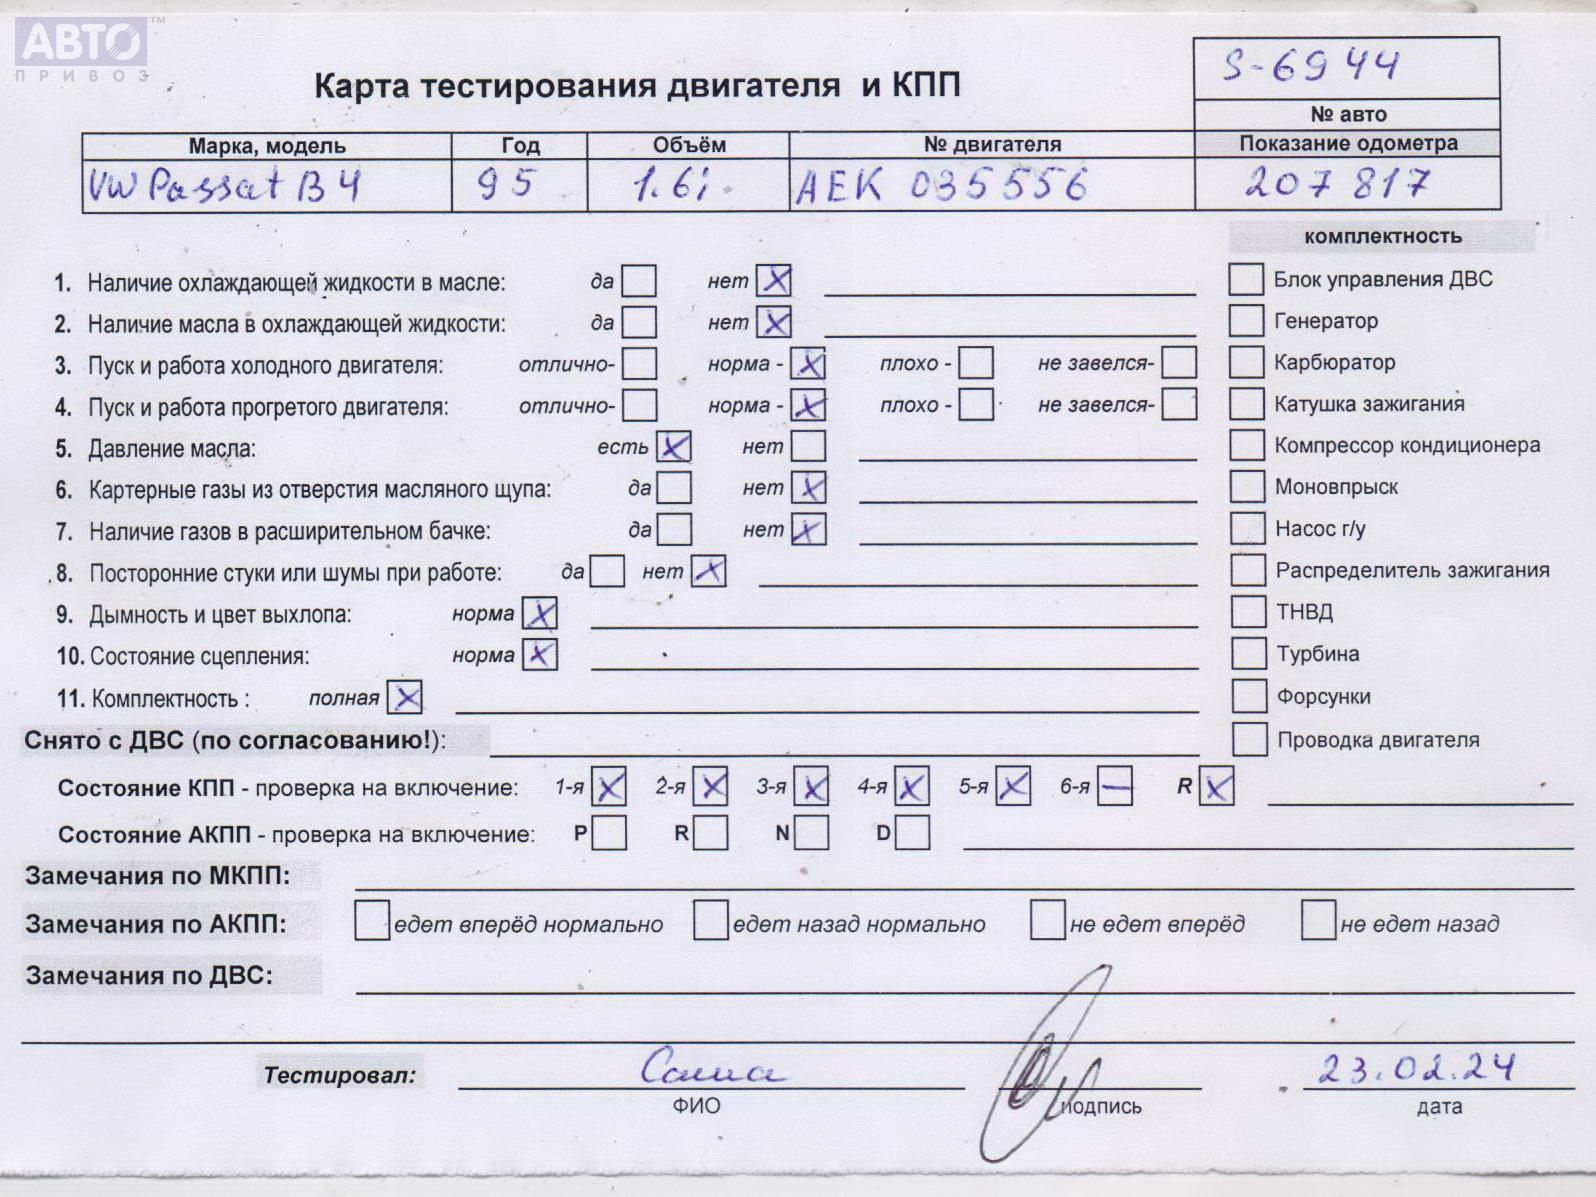 АВТО™
ПРИВОЗ
S-6944
Карта тестирования двигателя и КПП
№ авто
Марка, модель Год Объём № двигателя Показание одометра
VW Passat B4 95 1.6i AEK 035556 207 817
комплектность
1. Наличие охлаждающей жидкости в масле: да нет X
Блок управления ДВС
2. Наличие масла в охлаждающей жидкости: да нет X
Генератор
3. Пуск и работа холодного двигателя: отлично- норма - X плохо - не завелся-
Карбюратор
4. Пуск и работа прогретого двигателя: отлично- норма - X плохо - не завелся-
Катушка зажигания
5. Давление масла: есть X нет
Компрессор кондиционера
6. Картерные газы из отверстия масляного щупа: да нет X
Моновпрыск
7. Наличие газов в расширительном бачке: да нет X
Насос г/у
8. Посторонние стуки или шумы при работе: да нет X
Распределитель зажигания
9. Дымность и цвет выхлопа: норма X
ТНВД
10. Состояние сцепления: норма X
Турбина
11. Комплектность : полная X
Форсунки
Снято с ДВС (по согласованию!):
Проводка двигателя
Состояние КПП - проверка на включение: 1-я X 2-я X 3-я X 4-я X 5-я X 6-я — R X
Состояние АКПП - проверка на включение: P R N D
Замечания по МКПП:
Замечания по АКПП: едет вперёд нормально едет назад нормально не едет вперёд не едет назад
Замечания по ДВС:
Тестировал: Саша 23.02.24
ФИО подпись дата